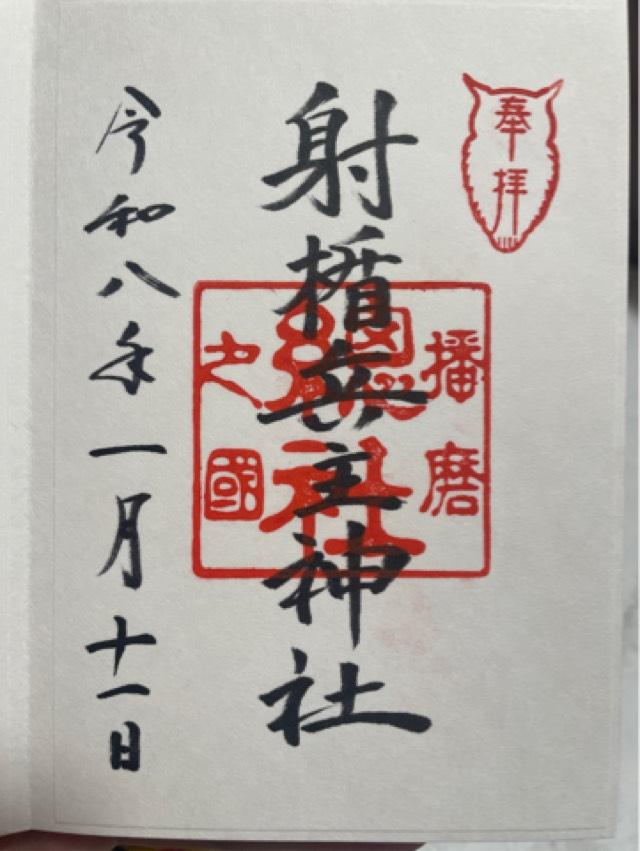 奉拝
射楯兵主神社
播磨
總社
之國
令和八年一月十一日